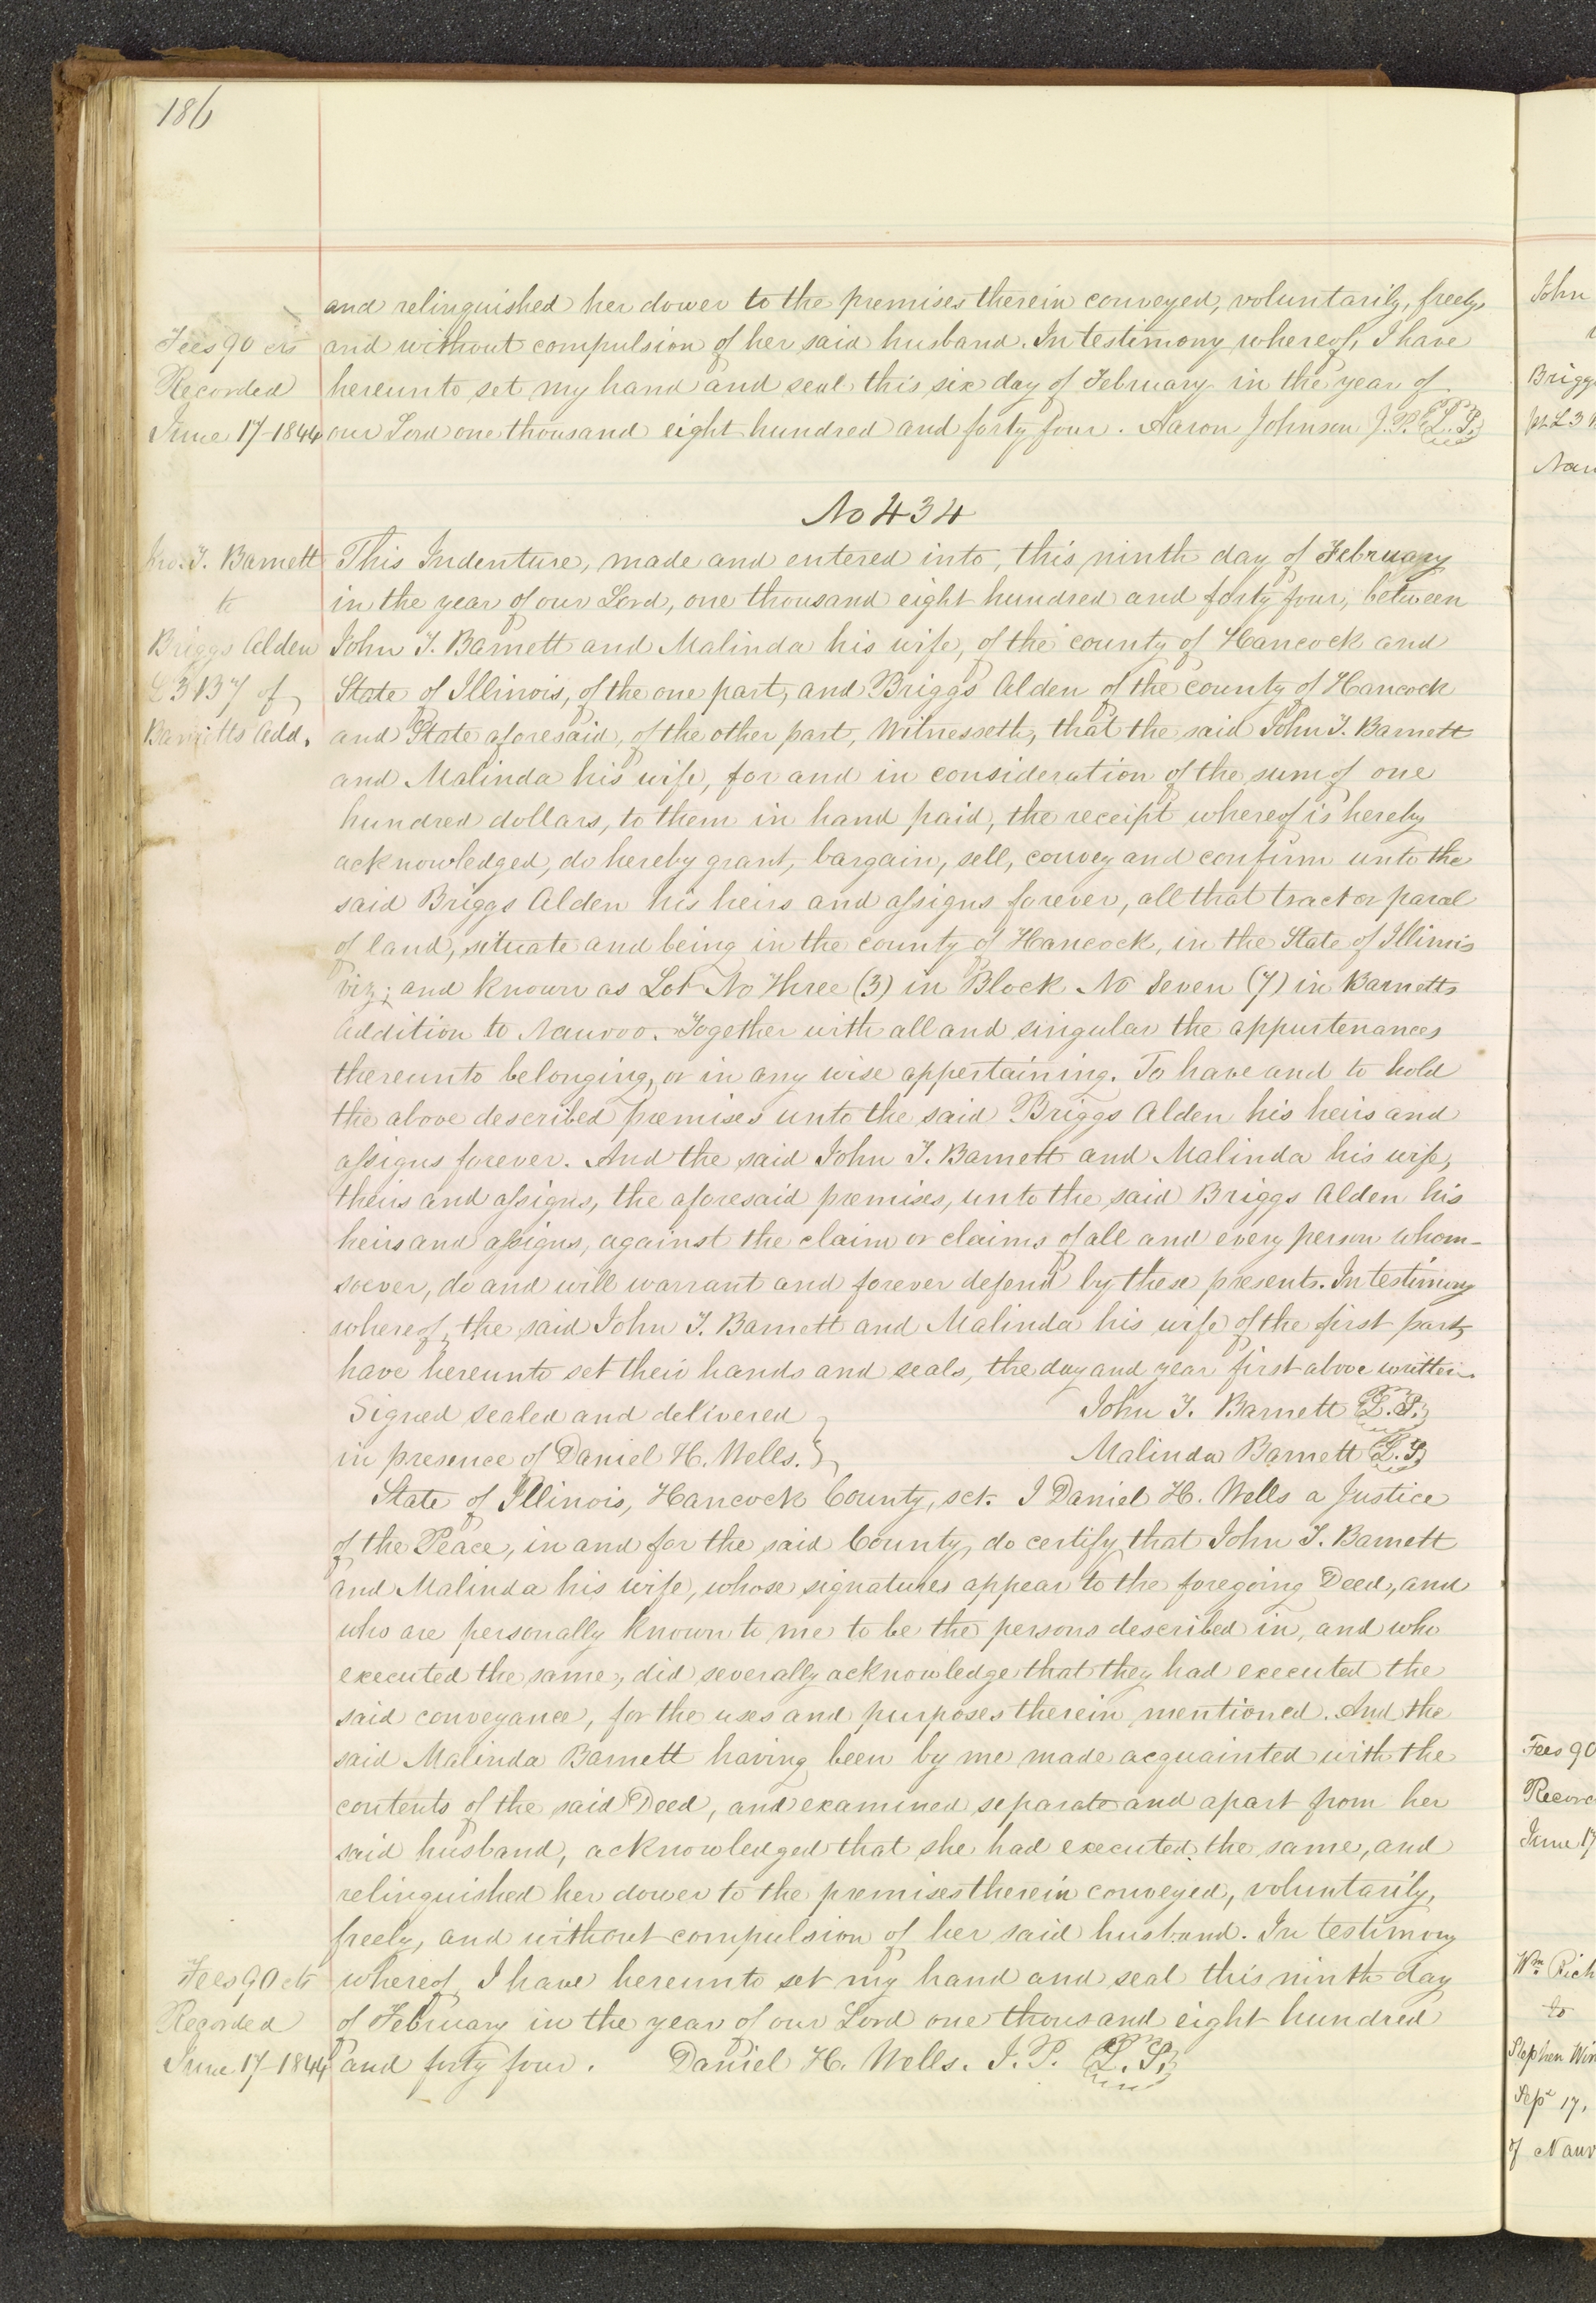 186
and relinquished her dower to the premises therein conveyed, voluntarily, freely,
Fees 90 cts and without compulsion of her said husband. In testimony whereof, I have
Recorded hereunto set my hand and seal this six day of February in the year of
June 17 1844 our Lord one thousand eight hundred and forty four. Aaron Johnson J.P. L.S.
No 434
Jno. T. Barnett This Indenture, made and entered into, this ninth day of February
to in the year of our Lord, one thousand eight hundred and forty four, between
Briggs Alden John T. Barnett and Malinda his wife, of the county of Hancock and
L 3 B 7 of State of Illinois, of the one part, and Briggs Alden of the county of Hancock
Barnetts Add. and State aforesaid, of the other part, Witnesseth, that the said John T. Barnett
and Malinda his wife, for and in consideration of the sum of one
hundred dollars, to them in hand paid, the receipt whereof is hereby
acknowledged, do hereby grant, bargain, sell, convey and confirm unto the
said Briggs Alden his heirs and assigns forever, all that tract or parcel
of land, situate and being in the county of Hancock, in the State of Illinois
viz; and known as Lot No Three (3) in Block No Seven (7) in Barnetts
Addition to Nauvoo. Together with all and singular the appurtenances
thereunto belonging, or in any wise appertaining. To have and to hold
the above described premises unto the said Briggs Alden his heirs and
assigns forever. And the said John T. Barnett and Malinda his wife,
theirs and assigns, the aforesaid premises, unto the said Briggs Alden his
heirs and assigns, against the claim or claims of all and every person whom-
soever, do and will warrant and forever defend by these presents. In testimony
whereof, the said John T. Barnett and Malinda his wife of the first part,
have hereunto set their hands and seals, the day and year first above written.
Signed sealed and delivered John T. Barnett L.S.
in presence of Daniel H. Wells. Malinda Barnett L.S.
State of Illinois, Hancock County, sct. I Daniel H. Wells a Justice
of the Peace, in and for the said County, do certify that John T. Barnett
and Malinda his wife, whose signatures appear to the foregoing Deed, and
who are personally known to me to be the persons described in, and who
executed the same, did severally acknowledge that they had executed the
said conveyance, for the uses and purposes therein mentioned. And the
said Malinda Barnett having been by me made acquainted with the
contents of the said Deed, and examined separate and apart from her
said husband, acknowledged that she had executed the same, and
relinquished her dower to the premises therein conveyed, voluntarily,
freely, and without compulsion of her said husband. In testimony
Fees 90 cts whereof, I have hereunto set my hand and seal this ninth day
Recorded of February in the year of our Lord one thousand eight hundred
June 17 1844 and forty four. Daniel H. Wells. J.P. L.S.
John
Briggs
Nau
Fees 90
Recor
June 17
Wm. Rich
to
Stephen Win
Sep 17,
of Nauv